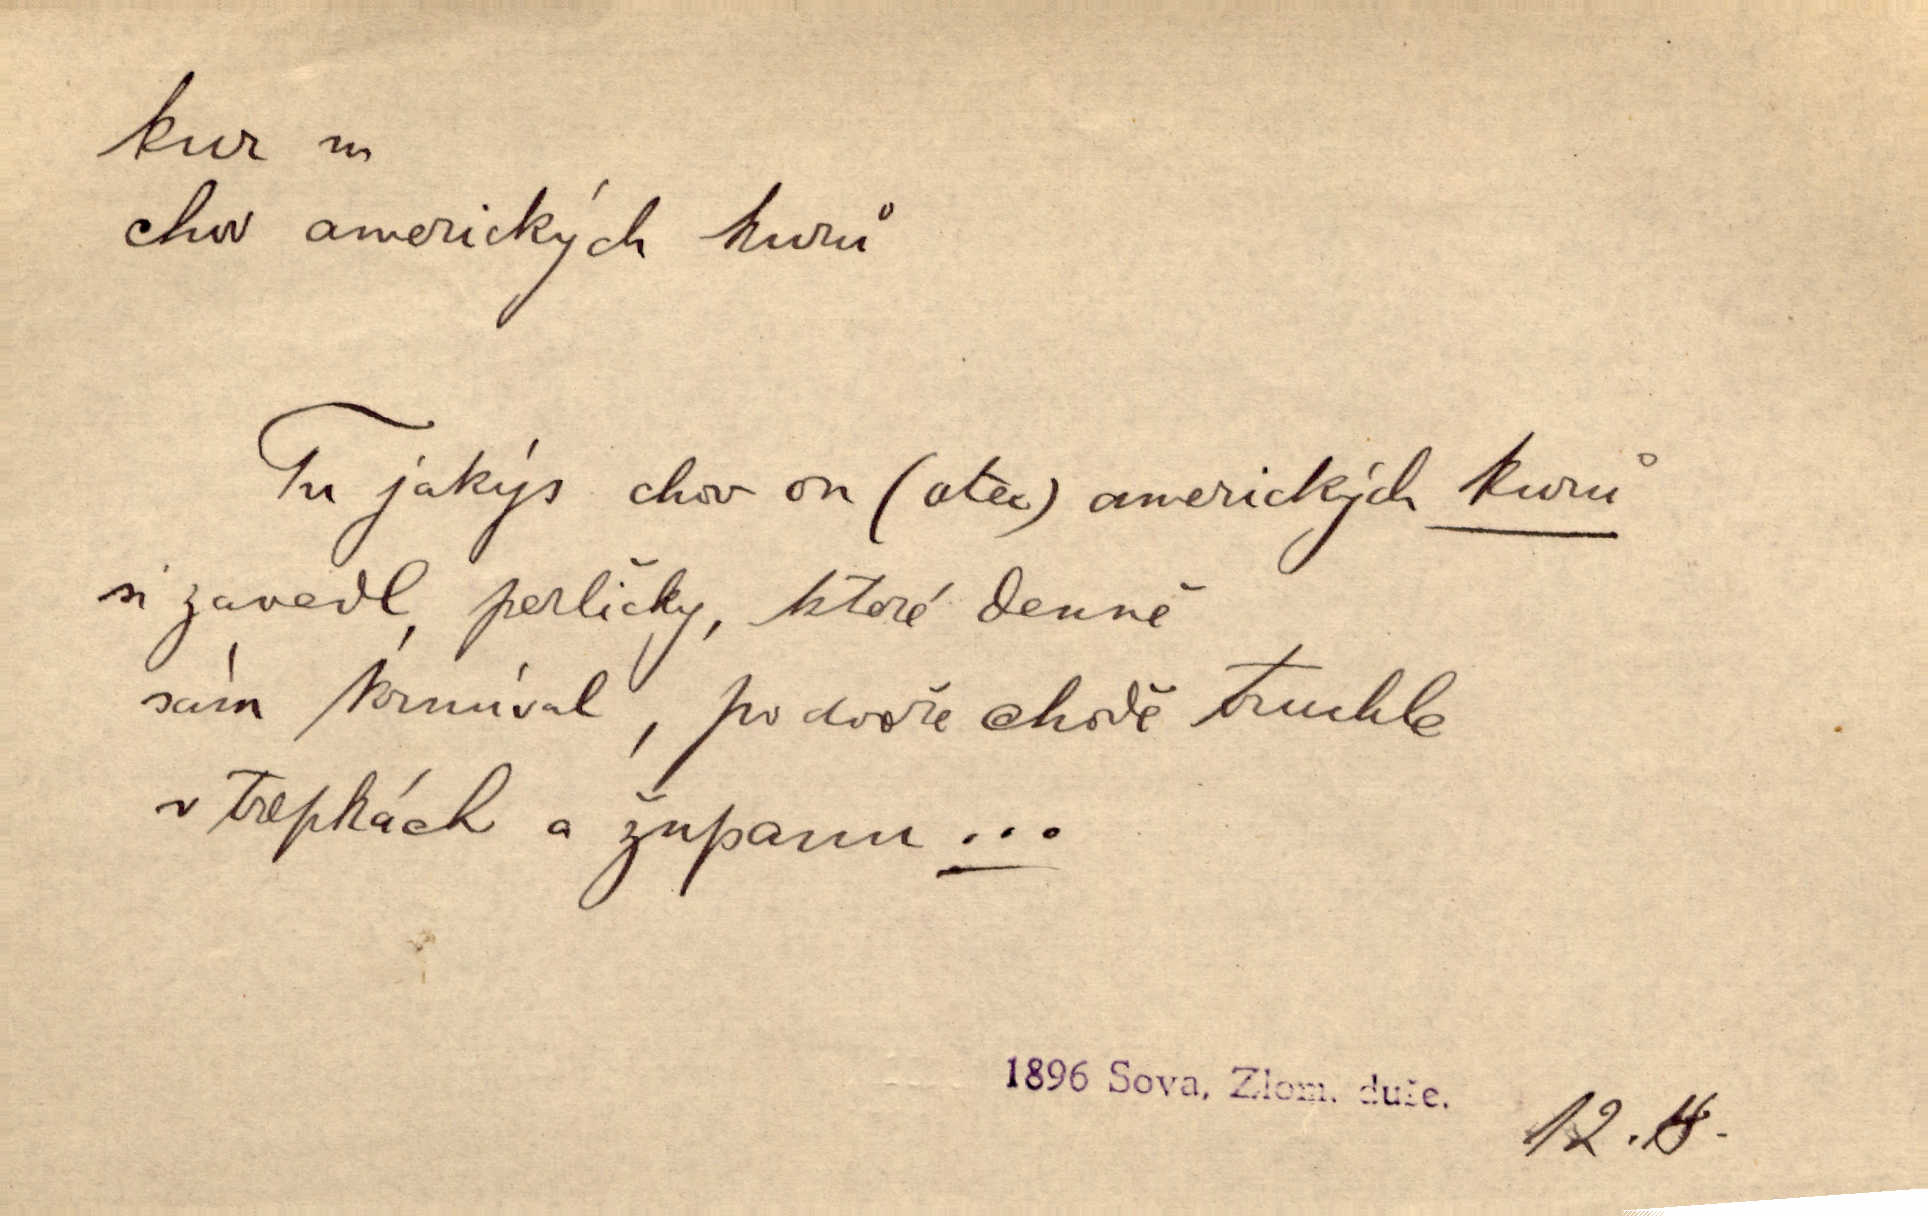 kur m
chov amerických kurů
Tu jakýs chov on (otec) amerických kurů
si zavedl, perličky, které denně
sám krmíval, po dvoře chodě truchle
v trepkách a županu ...
1896 Sova, Zlom. duše.
12.